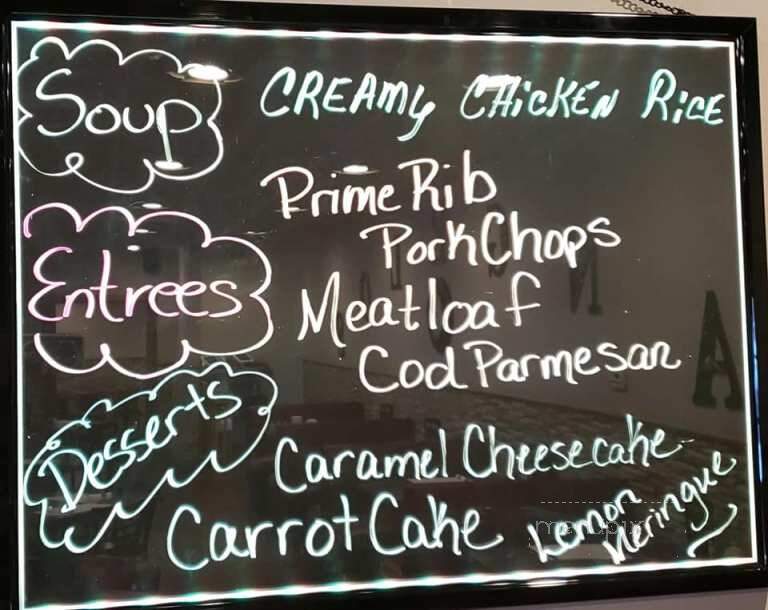 Soup
CREAMY CHICKEN RICE
Entrees
Prime Rib
Pork Chops
Meatloaf
Cod Parmesan
Desserts
Caramel Cheesecake
Carrot Cake
Lemon
Meringue